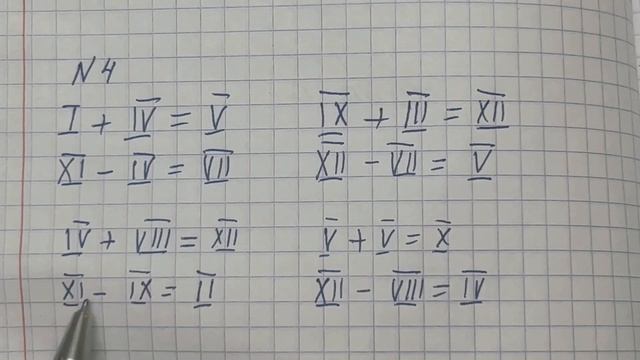 N 4
I + IV = V
XI - IV = VII
IX + III = XII
XII - VII = V
IV + VIII = XII
XI - IX = II
V + V = X
XII - VIII = IV